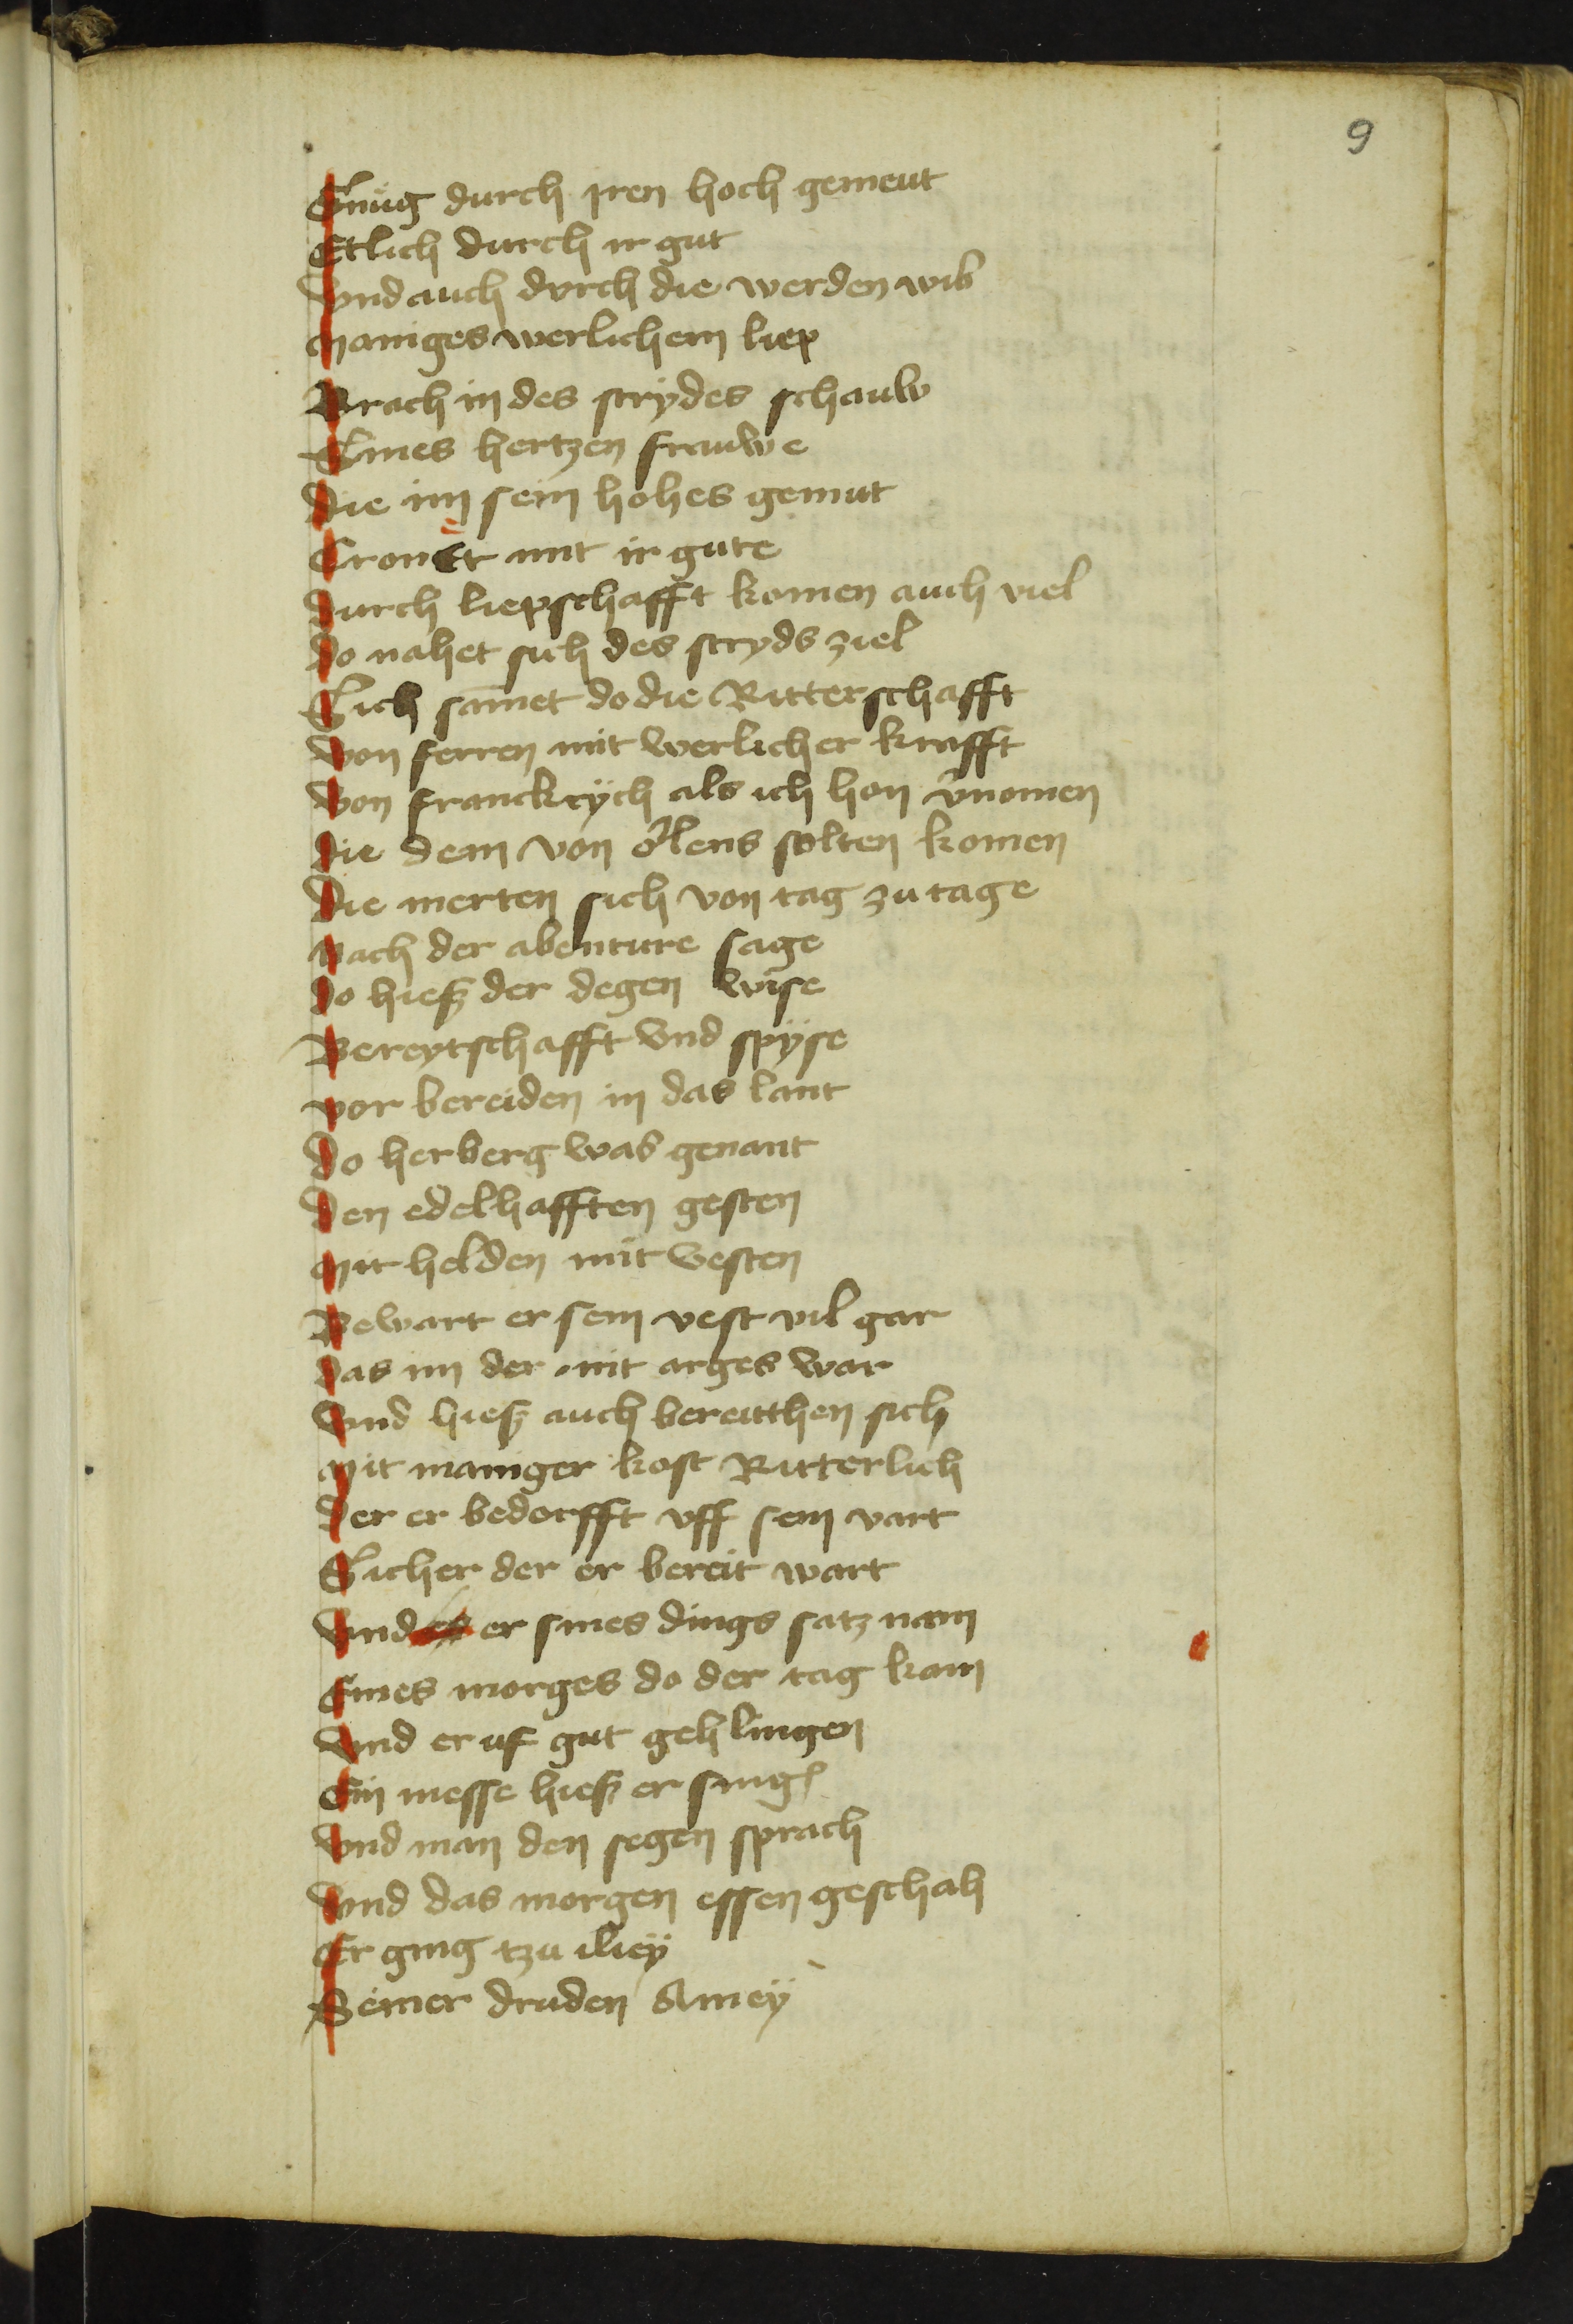 9
Gnug durch iren hoch gemeut
Etlich durch ir gut
Vnd auch dvrch die werden wib
Maniges werlichem liep
Brach in des strydes schauw
Eines hertzen frauwe
Die im sein hohes gemut
Cronet mit ir gute
Durch liepschafft komen auch viel
Do nahet sich des stryds ziel
Sich samet do die Ritterschafft
Von ferren mit werlicher krafft
Von franckrÿch als ich hon v̾nomen
Die dem von orlens solten komen
Die merten sich von tag zu tage
Nach der abenture sage
Do hiesz der degen wise
Bereytschafft vnd spÿse
Vor bereiden in das lant
Do herberg was genant
Den edelhafften gesten
Mit helden mut vesten
Bewart er sein vest vil gar
Das im der nit arges war
Vnd hiesz auch bereitthen sich
Mit maniger kost Ritterlich
Der er bedorfft vff sein vart
Sicher der er bereit wart
Vnd er sines dings satz nam
Eines morges do der tag kam
Vnd er uf gut gehlingen
Ein messe hiesz er sing
Vnd man den segen sprach
Vnd das morgen essen geschah
Er ging tzu iliey
Seiner druden Amey